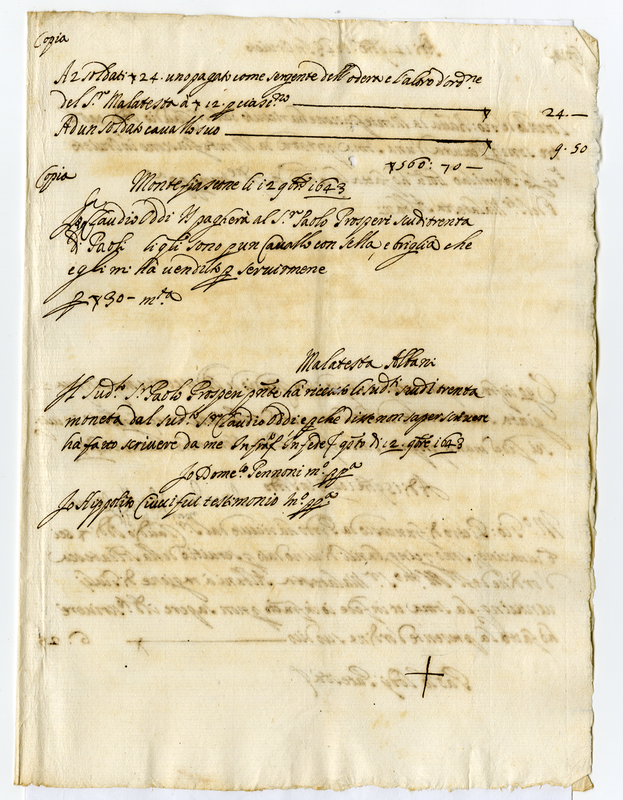 Copia
A 2 soldati ▽ 24. uno pagato come sergente dell' e l'altro d'ord.ne
del S.r Malatesta à ▽ 12. p 24.—
Ad un soldato cavallo suo 9. 50
▽ 560: 70 —
Copia
Montefiascone li 12 9bre 1643
S.r Claudio Oddi V pagherà al S.r Paolo Prosperi scudi trenta
di Paoli li q.li sono p un Cavallo con sella, e briglia che
egli mi hà venduto p servirmene
p ▽ 30 — m.ta
Malatesta Albani
Il sud.o S.r Paolo Prosperi p.nte hà ricevuto li sud.i scudi trenta
moneta dal sud.o S.r Claudio Oddi e p che disse non saper scrivere
hà fatto scrivere da me In fede q.sto dì 12. 9bre 1643
Io Dome.co Pennoni m.o pp.a
Io Hippolito fui testimonio m.o pp.a